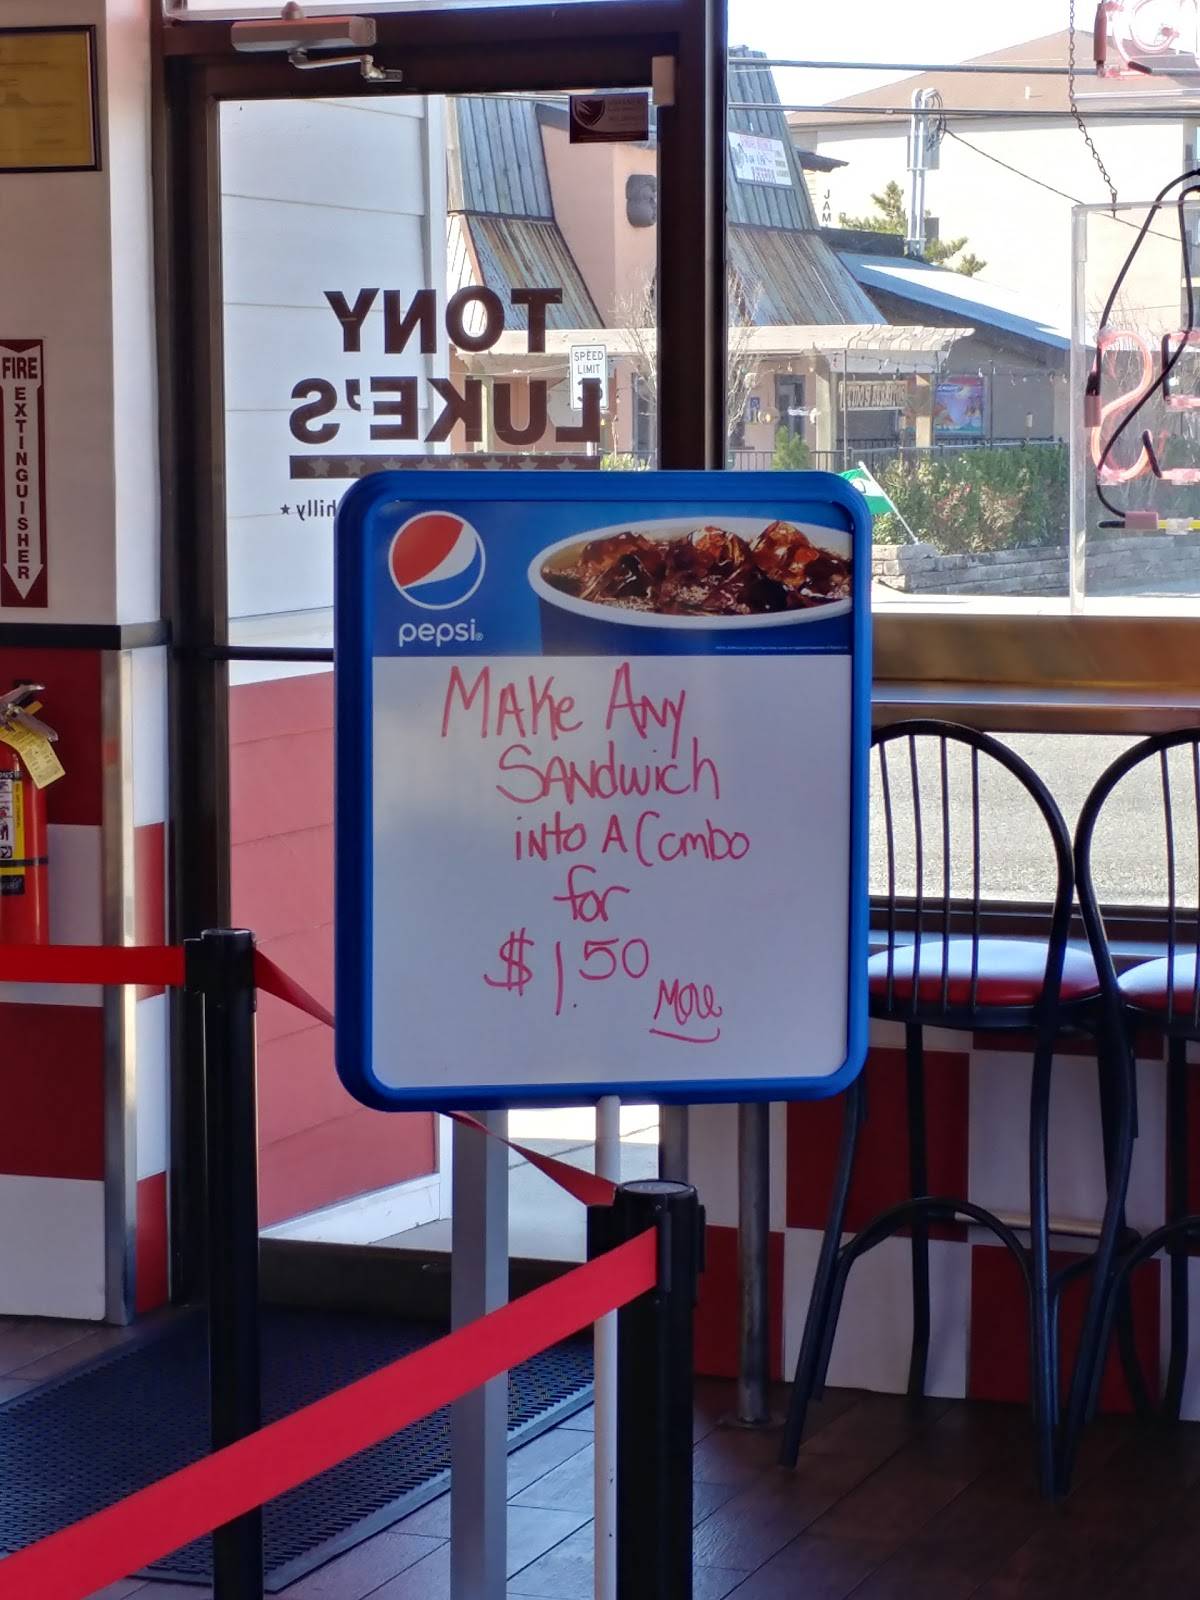 TONY
LUKE'S
hilly ★
SPEED
LIMIT
JAM
FIRE
EXTINGUISHER
pepsi
MAKe ANy
SANdwich
iNto A Combo
for
$1.50
More